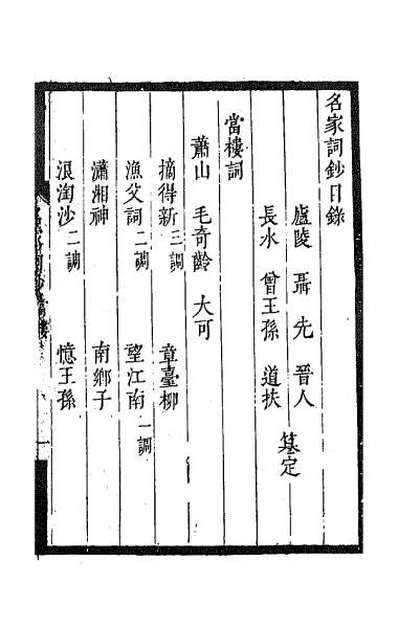 名家詞鈔目錄
廬陵 聶先 晉人
長水 曾王孫 道扶
篹定
當樓詞
蕭山 毛奇齡 大可
摘得新三調 章臺柳
漁父詞二調 望江南一調
瀟湘神 南鄉子
浪淘沙二調 憶王孫